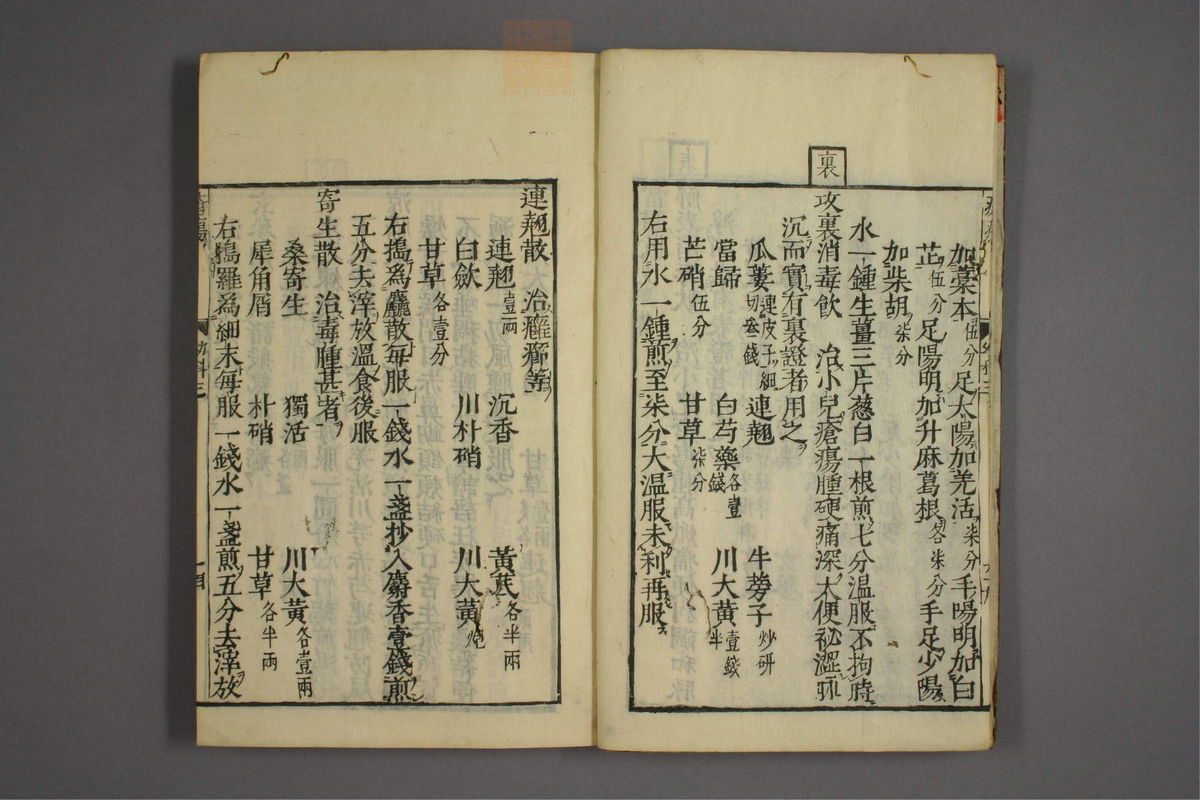 加藁本伍分足太陽加羌活柒分手陽明加白
芷伍分足陽明加升麻葛根各柒分手足少陽
加柴胡柒分
水一鍾生薑三片葱白一根煎七分温服不拘時
裏
攻裏消毒飲 治小兒瘡瘍腫硬痛深大便祕澀脉
沉而實有裏證者用之
瓜蔞連皮子細切叁錢 連翹 牛蒡子炒研
當歸 白芍藥各壹錢 川大黃壹錢半
芒硝伍分 甘草柒分
右用水一鍾煎至柒分大温服未利再服
連翹散 治癰癤等
連翹壹兩 沉香 黃芪各半兩
白歛 川朴硝 川大黃炮
甘草各壹分
右搗為麤散每服一錢水一盞抄入麝香壹錢煎
五分去滓放溫食後服
寄生散 治毒腫甚者
桑寄生 獨活 川大黃各壹兩
犀角屑 朴硝 甘草各半兩
右搗羅為細末每服一錢水一盞煎五分去滓放